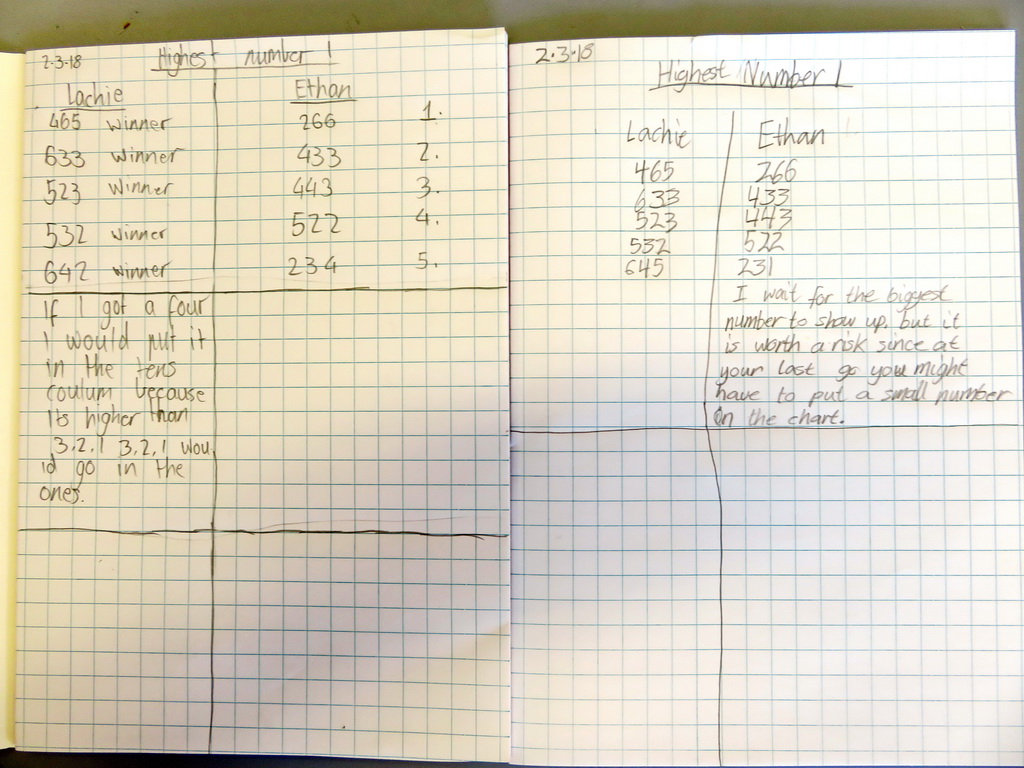 2-3-18 Highest number 1
Lachie Ethan
465 winner 266 1.
633 winner 433 2.
523 winner 443 3.
532 winner 522 4.
642 winner 234 5.
If I got a four
I would put it
in the tens
coulum because
its higher than
3,2,1 3,2,1 wou
ld go in the
ones.
2.3.18
Highest Number 1
Lachie Ethan
465 266
633 433
523 443
532 522
645 231
I wait for the biggest
number to show up. but it
is worth a risk since at
your last go you might
have to put a small number
on the chart.